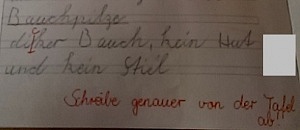 Bauchpilze
dicker Bauch, kein Hut
und kein Stiel
Schreibe genauer von der Tafel
ab.